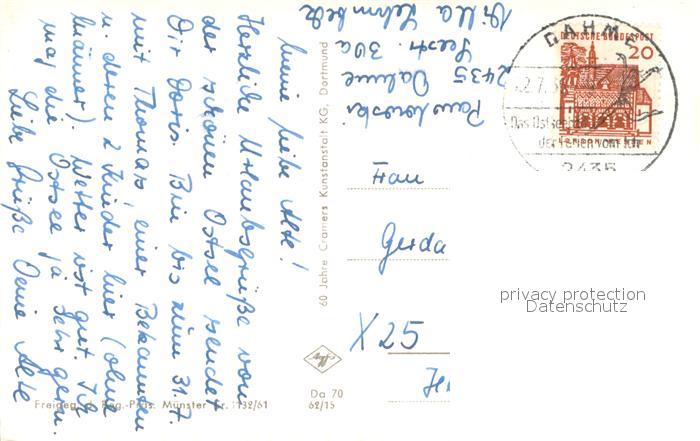 Meine liebe Alte!
Herzliche Urlaubsgrüße von
der schönen Ostsee sendet
Dir Doris. Bin bis zum 31.7.
mit Thomas, einer Bekannten
u. deren 2 Kinder hier (ohne
Männer). Wetter ist gut. Ich
mag die Ostsee ja sehr gern.
Liebe Grüße Deine Alte
Freigeg. d. Reg.-Präs. Münster Nr. 1132/61
60 Jahre Cramers Kunstanstalt KG, Dortmund
Da 70
62/15
2435 Dahme
Seestr. 30a
Villa
DAHME
2435
DEUTSCHE BUNDESPOST
20
LORSCH HESSEN
Das Ostsee
Frau
Gerda
X 25
privacy protection
Datenschutz